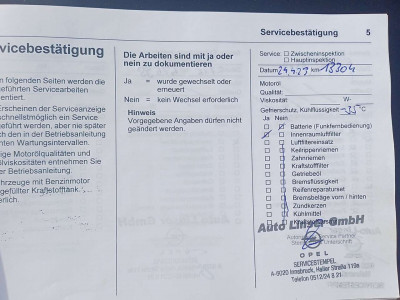 Servicebestätigung 5
vicebestätigung
n folgenden Seiten werden die
geführten Servicearbeiten
entiert.
Erscheinen der Serviceanzeige
schnellstmöglich ein Service
geführt werden, aber nie später
ch den in der Betriebsanleitung
nten Wartungsintervallen.
ige Motorölqualitäten und
ölviskositäten entnehmen Sie
er Betriebsanleitung.
hrzeuge mit Benzinmotor
gefüllter Kraftstofftank.
erlich.
Die Arbeiten sind mit ja oder
nein zu dokumentieren
Ja = wurde gewechselt oder
erneuert
Nein = kein Wechsel erforderlich
Hinweis
Vorgegebene Angaben dürfen nicht
geändert werden.
Service: Zwischeninspektion
Hauptinspektion
Datum km 13304
Motoröl
Qualität:
Viskosität: W-
Gefrierschutz, Kühlflüssigkeit -35°C
Ja Nein
Batterie (Funkfernbedienung)
Innenraumluftfilter
Luftfiltereinsatz
Keilrippenriemen
Zahnriemen
Kraftstofffilter
Getriebeöl
Bremsflüssigkeit
Reifenreparaturset
Bremsbeläge vorn / hinten
Zündkerzen
Kühlmittel
Auto Linser GmbH
OPEL
SERVICESTEMPEL
A-6020 Innsbruck, Haller Straße 119a
Telefon 0512/24 8 21